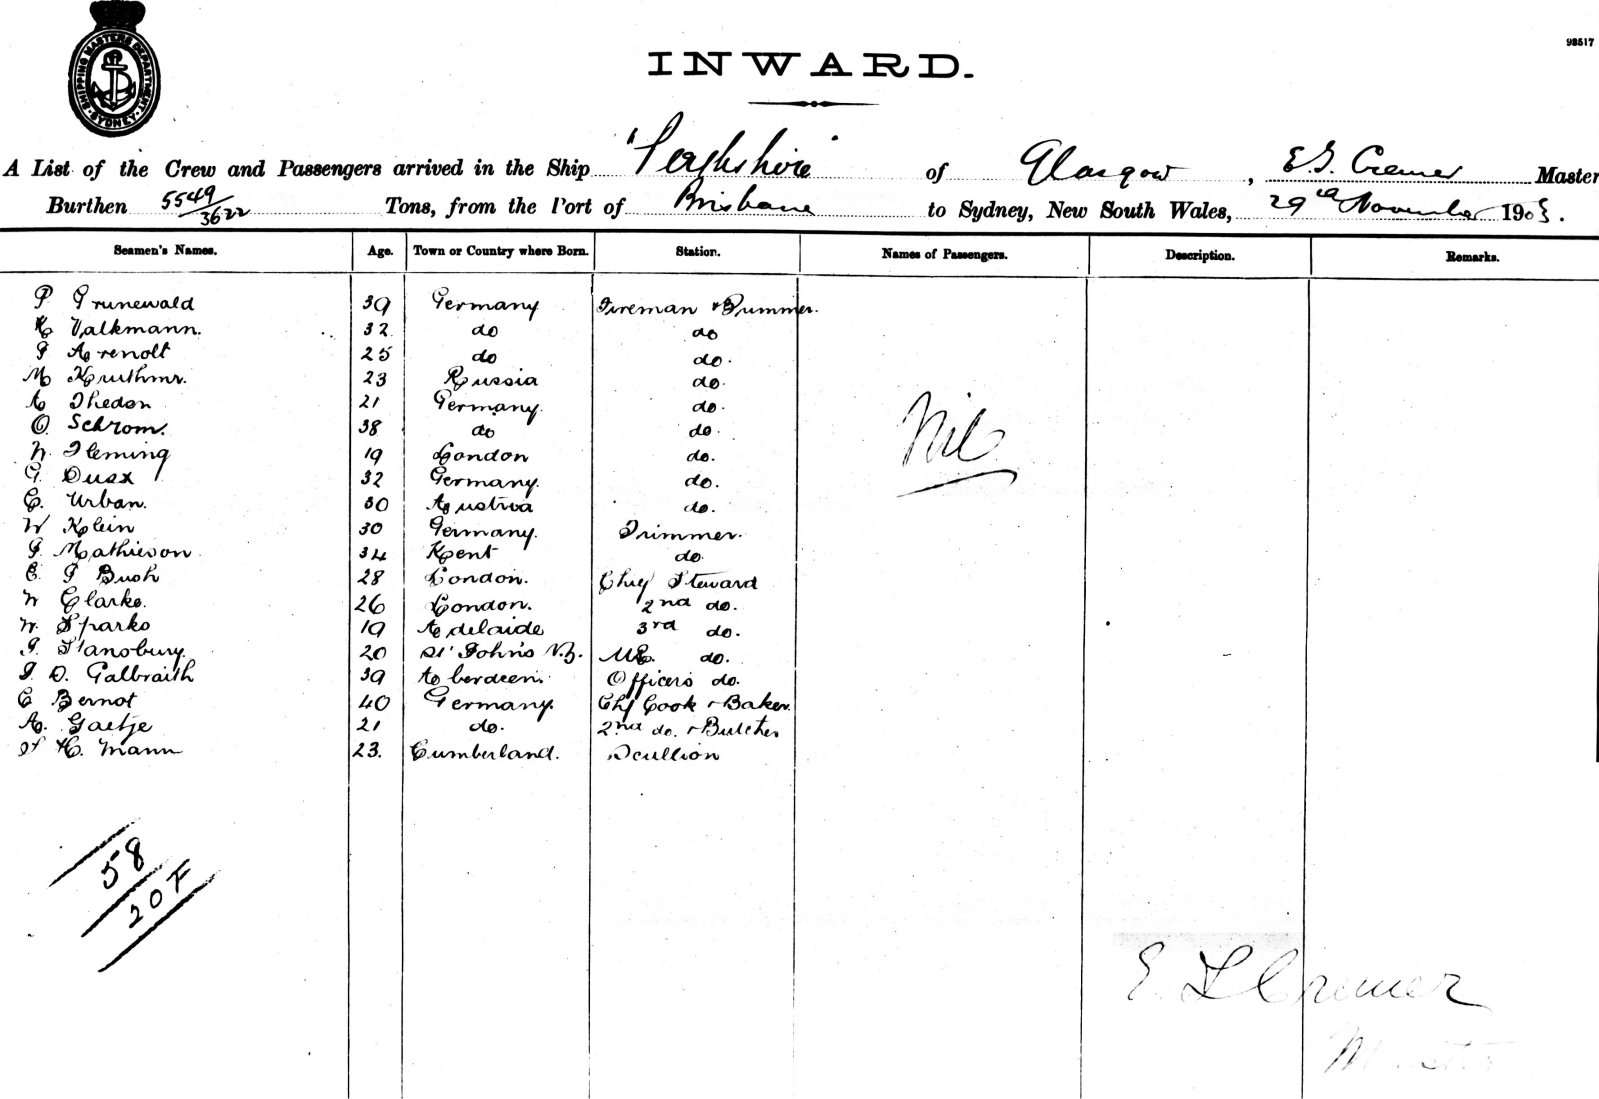 SHIPPING MASTERS DEPARTMENT SYDNEY
98517
INWARD.
A List of the Crew and Passengers arrived in the Ship "Perthshire" of Glasgow, E. G. Cremer Master
Burthen 5549/3622 Tons, from the Port of Brisbane to Sydney, New South Wales, 29th November 1903.
Seamen's Names. Age. Town or Country where Born. Station. Names of Passengers. Description. Remarks.
P Grunewald 39 Germany Fireman & Trimmer.
K Valkmann. 32 do do
G Arenolt 25 do do.
M Kruthmr. 23 Russia do.
A Thedon 21 Germany. do.
O. Schrom. 38 do do.
W. Fleming 19 London do.
G. Dusx 32 Germany. do.
C. Urban. 30 Austria do.
W Klein 30 Germany. Trimmer.
G. Mathieson 34 Kent do.
E. G Bush 28 London. Chief Steward
W Clarke. 26 London. 2nd do.
W. Sparks 19 Adelaide 3rd do.
G. Stansbury. 20 St Johns N.B. do.
J. D. Galbraith 39 Aberdeen. Officers do.
C Bernot 40 Germany. Chf Cook & Baker.
A. Gaetje 21 do. 2nd do. & Butcher
H. Mann 23. Cumberland. Scullion
Nil
58
20 F
E Cremer
Master